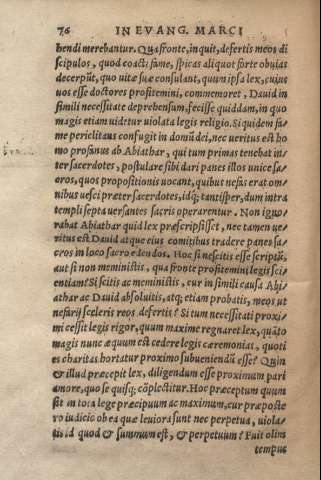 76 IN EVANG. MARCI
hendi merebantur. Qua fronte, inquit, defertis meos di
scipulos, quod coacti fame, spicas aliquot forte obuias
decerpūt, quo uitæ suæ consulant, quum ipsa lex, cuius
uos esse doctores profitemini, commemoret, Dauid in
simili necessitate deprehensum, fecisse quiddam, in quo
magis etiam uidetur uiolata legis religio. Si quidem fa=
me periclitans confugit in domū dei, nec ueritus est ho
mo profanus ab Abiathar, qui tum primas tenebat in=
ter sacerdotes, postulare sibi dari panes illos unice sa=
cros, quos propositionis uocant, quibus nefas erat om=
nibus uesci præter sacerdotes, idq; tantisper, dum intra
templi septa uersantes sacris operarentur. Non igno=
rabat Abiathar quid lex præscripsisset, nec tamen ue=
ritus est Dauid atque eius comitibus tradere panes sa=
cros in loco sacro edendos. Hoc si nescitis esse scriptū,
aut si non meministis, qua fronte profitemini legis sci=
entiam? Si scitis ac meministis, cur in simili causa Abi=
athar ac Dauid absoluitis, atq; etiam probatis, meos ut
nefarij sceleris reos defertis? Si tum necessitati proxi=
mi cessit legis rigor, quum maxime regnaret lex, quāto
magis nunc æquum est cedere legis cæremonias, quoti
es charitas hortatur proximo subueniendū esse? Quin
& illud præcepit lex, diligendum esse proximum pari
amore, quo se quisq; cōplectitur. Hoc præceptum quum
sit in tota lege præcipuum ac maximum, cur præposte
ro iudicio ob ea quæ leuiora sunt nec perpetua, uiola=
tis id quod & summum est, & perpetuum? Fuit olim
tempus